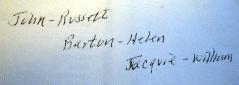 John - Russell
Barton - Helen
Jacquie - William